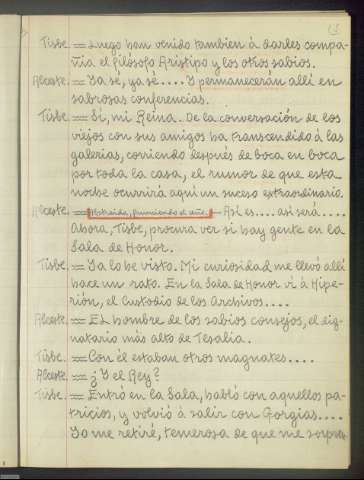 Tisbe. = Luego han venido también á darles compa-
ñía el filósofo Aristipo y los otros sabios.
Alceste. = Ya sé, ya sé.... Y permanecerán allí en
sabrosas conferencias.
Tisbe. = Sí, mi Reina. De la conversación de los
viejos con sus amigos ha transcendido á las
galerías, corriendo después de boca en boca
por toda la casa, el rumor de que esta
noche ocurrirá aquí un suceso extraordinario.
Alceste. = Abstraída, frunciendo el ceño. — Así es.... así será....
Ahora, Tisbe, procura ver si hay gente en la
Sala de Honor.
Tisbe. = Ya lo he visto. Mi curiosidad me llevó allí
hace un rato. En la Sala de Honor vi á Hipe-
rión, el Custodio de los Archivos....
Alceste. = El hombre de los sabios consejos, el dig-
natario más alto de Tesalia.
Tisbe. = Con él estaban otros magnates....
Alceste. = ¿Y el Rey?
Tisbe. = Entró en la Sala, habló con aquellos pa-
tricios, y volvió á salir con Gorgias....
Yo me retiré, temerosa de que me sorpren-